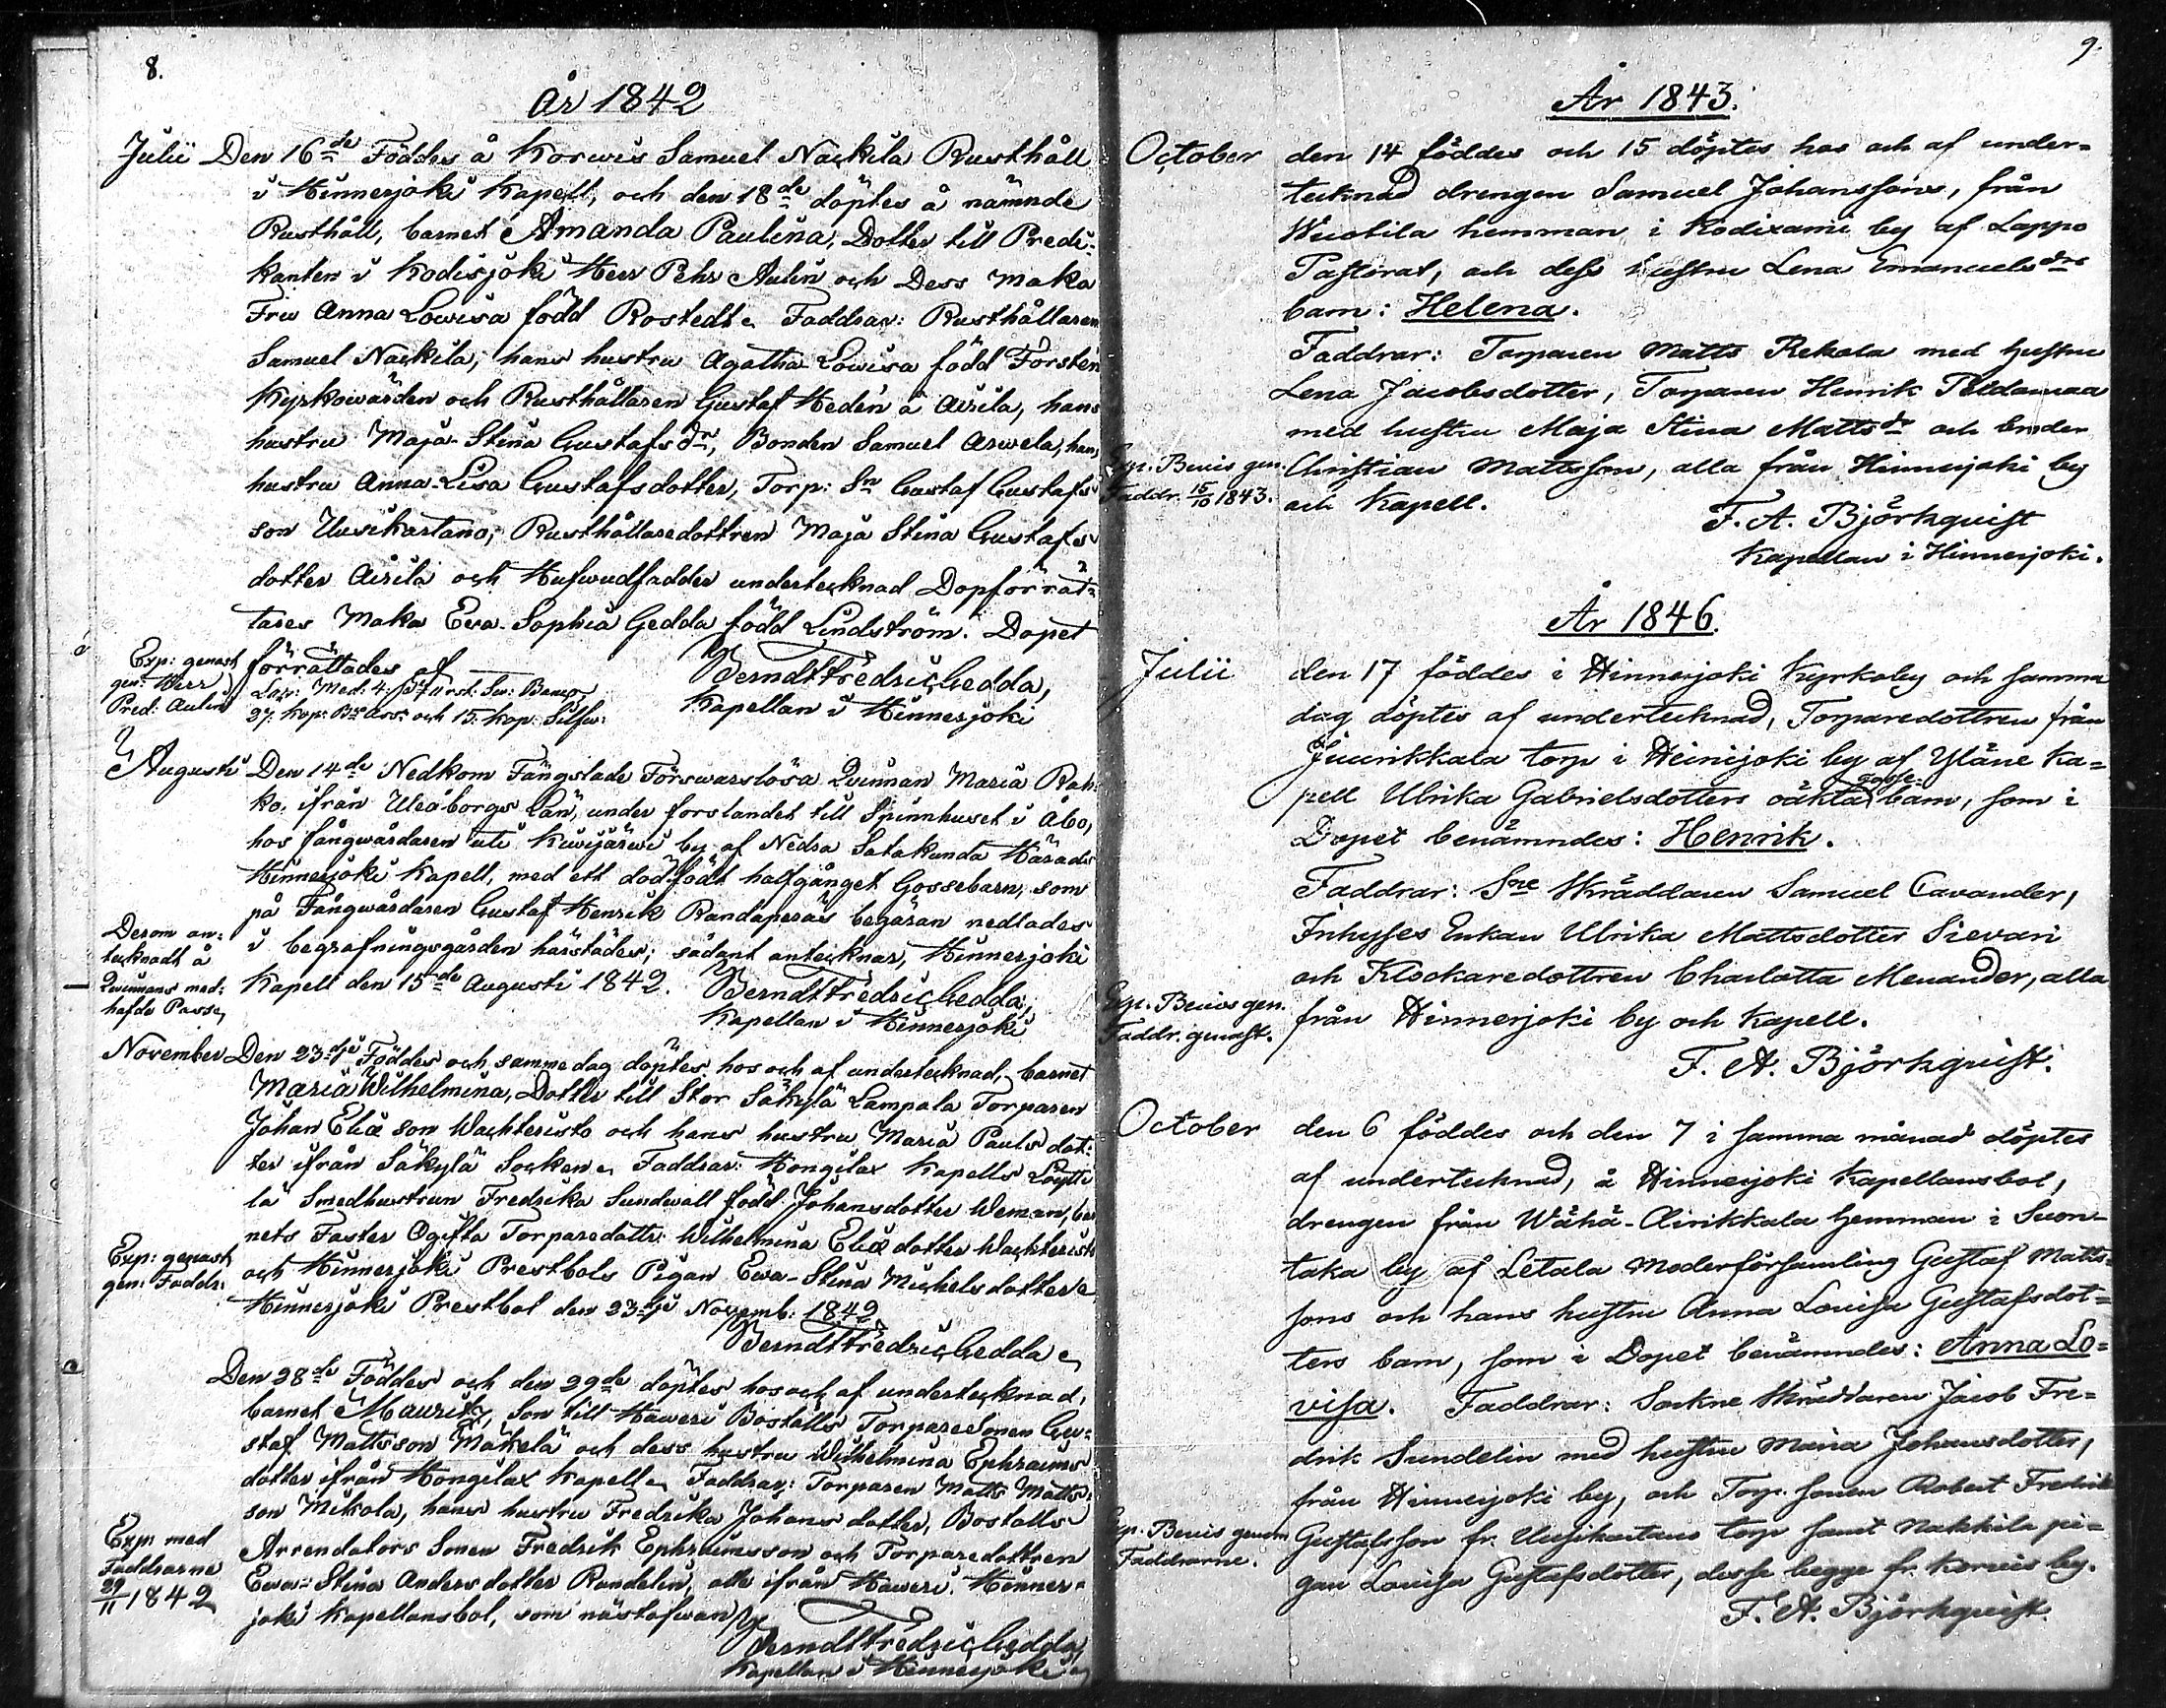 8.
År 1842
Julii Den 16de Föddes å Korwis Samuel Nackila Rusthåll
i Hinnerjoki Kapell, och den 18de döptes å nämnde
Rusthåll, barnet Amanda Paulina, Dotter till Predi-
kanten i Kodisjoki Herr Pehr Aulin och Dess Maka
Fru Anna Lowisa född Rostedt. Faddrar: Rusthållaren
Samuel Nackila, hans hustru Agatha Lowisa född Forsten
Kyrkowärden och Rusthållaren Gustaf Hedén å Airila, hans
hustru Maja-Stina Gustafs dr, Bonden Samuel Arwela, hans
hustru Anna-Lisa Gustafsdotter, Torp: Sn Gustaf Gustafs
son Uusikartano, Rusthållaredottren Maja Stina Gustafs
dotter Airila och Hufwudfadder undertecknad Dopförrät-
tares Maka Ewa-Sophia Gedda född Lindström. Dopet
förrättades af
Exp: genast
gen: Herr
Pred: Aulin
27. kop: Br Ass: och 15. kop: Silfw:
Berndt Fredric Gedda,
Kapellan i Hinnerjoki
Augusti Den 14de Nedkom Fängslade Förswarslösa Quinnan Maria Rah-
ko, ifrån Uleåborgs Län, under forslandet till Spinnhuset i Åbo,
hos fångwårdaren uti Kuwijärwi by af Nedra Satakunda Härads
Hinnerjoki Kapell, med ett dödfödt halfgånget Gossebarn, som
på Fångwårdaren Gustaf Henrik Randaperäs begäran nedlades
i begrafningsgården härstädes; sådant antecknar, Hinnerjoki
Kapell den 15de Augusti 1842. Berndt Fredric Gedda,
Kapellan i Hinnerjoki
Derom an-
tecknadt å
Quinnans med-
hafde Passe
November Den 23dje Föddes och samme dag döptes hos och af undertecknad, barnet
Maria Wilhelmina, Dotter till Stor Säkylä Lampala Torparen
Johan Eliæ son Wachteristo och hans hustru Maria Pauls dot-
ter ifrån Säkylä Socken. Faddrar: Hongilax Kapells Löytti
lä Smedhustrun Fredrika Sundwall född Johansdotter Weman, bar
nets Faster Ogifta Torparedottr: Wilhelmina Eliæ dotter Wachteristo
och Hinnerjoki Prestbols Pigan Ewa-Stina Michelsdotter
Hinnerjoki Prestbol den 23dje Novemb: 1842
Exp: genast
gen: Faddr:
Berndt Fredric Gedda
Den 28de Föddes och den 29de döptes hos och af undertecknad,
barnet Mauritz, Son till Haweri Boställs TorpareSonen Gu-
staf Mattsson Mäkelä och dess hustru Wilhelmina Ephraims
dotter ifrån Hongilax Kapell. Faddrar: Torparen Matts Matts-
son Mikola, hans hustru Fredrika Johans dotter, Boställs
Arrendators Sonen Fredrik Ephraimsson och Torparedottren
Ewa-Stina Anders dotter Randelin, alla ifrån Haweri. Hinner-
joki Kapellansbol, som nästofwan
Exp. med
Faddrarne
29/11 1842
Berndt Fredric Gedda,
Kapellan i Hinnerjoki
9.
År 1843.
October den 14 föddes och 15 döptes hos och af under-
tecknad drengen Samuel Johanssons, från
Wuotila hemman i Kodixami by af Lappo
Pastorat, och dess hustru Lena Emanuelsdrs
barn: Helena.
Faddrar: Torparen Matts Rekola med hustru
Lena Jacobsdotter, Torparen Henrik Peldamaa
med hustru Maja Stina Mattsdr och
Christian Mattsson, alla från Hinnerjoki by
och Kapell.
Exp. Bevis gen.
Faddr. 15/10 1843.
F. A. Björkqvist
Kapellan i Hinnerjoki.
År 1846.
Julii den 17 föddes i Hinnerjoki Kyrkoby och samma
dag döptes af undertecknad, Torparedottren från
Juurikkala torp i Heinijoki by af Yläne Ka-
pell Ulrika Gabrielsdotters oäkta gosse-barn, som i
Dopet benämndes: Henrik.
Faddrar: Sne Skräddaren Samuel Cavander,
Inhyses Enkan Ulrika Mattsdotter Sievari
och Klockaredottren Charlotta Menander, alla
från Hinnerjoki by och Kapell.
Exp. Bevis gen.
Faddr. genast.
F. A. Björkqvist.
October den 6 föddes och den 7 i samma månad döptes
af undertecknad, å Hinnerjoki Kapellansbol,
drengen från Wähä-Airikkala hemman i Suon-
taka by af Letala Moderförsamling Gustaf Matts-
sons och hans hustru Anna Lovisa Gustafsdot-
ters barn, som i Dopet benämndes: Anna Lo-
visa. Faddrar: Sockne Skräddaren Jacob Fre-
drik Sundelin med hustru Maria Johansdotter,
från Hinnerjoki by, och Torp. sonen Robert Fredrik
Gustafsson fr. Uusikartano torp samt Nakkila pi-
gan Lovisa Gustafsdotter, desse begge fr. Korvis by.
Exp. Bevis genom
Faddrarne.
F. A. Björkqvist.